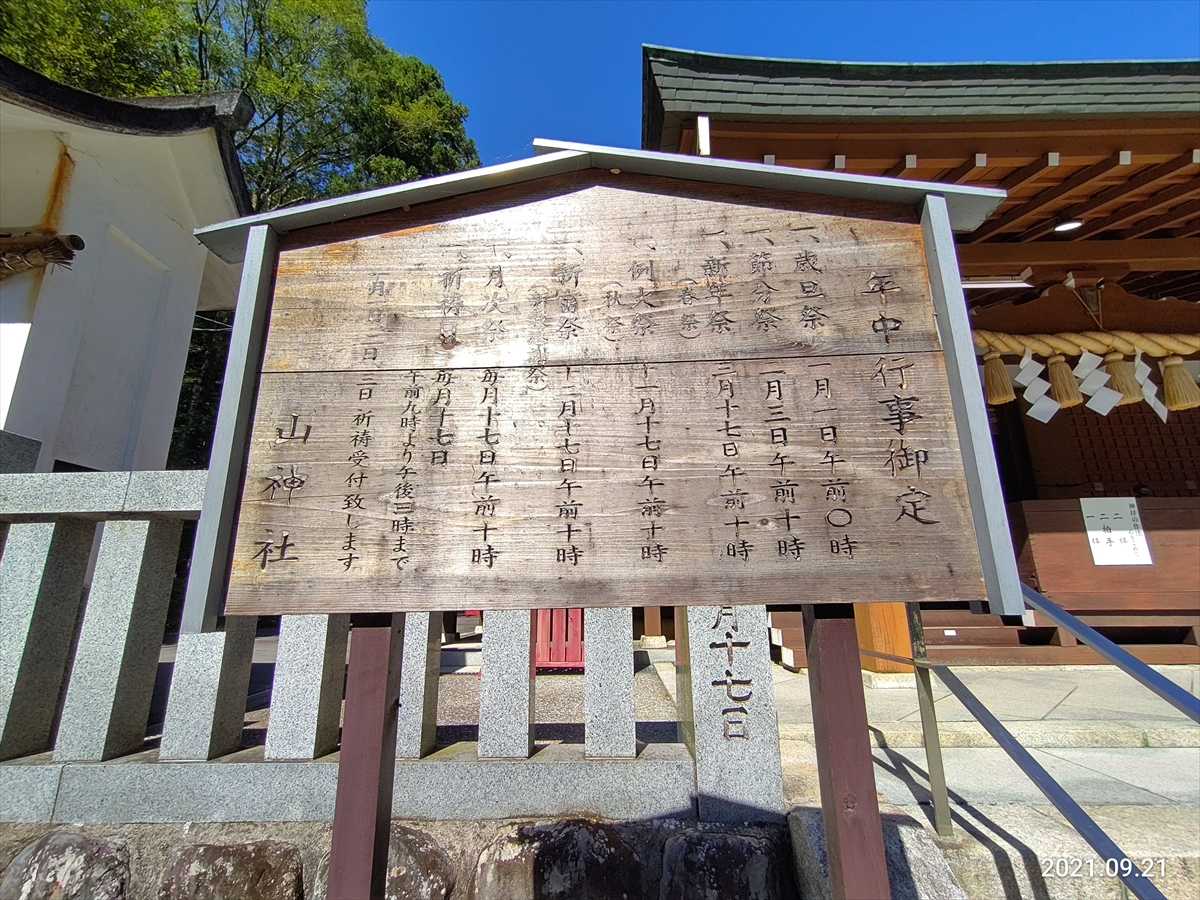 年中行事御定
一、歳旦祭 一月一日午前〇時
一、節分祭 二月三日午前十時
一、新年祭 二月十七日午前十時
（春祭）
一、例大祭 十一月十七日午前十時
（秋祭）
一、新嘗祭 十二月十七日午前十時
祭）
一、月次祭 毎月十七日午前十時
一、祈祷日 毎月十七日
午前九時より午後三時まで
日 祈祷受付致します
山神社
月十七日
二礼
二拍手
一礼
2021.09.21